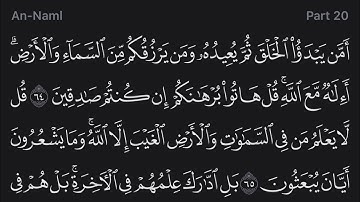 An-Naml Part 20
أَمَّن يَبْدَؤُا۟ ٱلْخَلْقَ ثُمَّ يُعِيدُهُۥ وَمَن يَرْزُقُكُم مِّنَ ٱلسَّمَآءِ وَٱلْأَرْضِ ۗ
أَءِلَـٰهٌ مَّعَ ٱللَّهِ ۚ قُلْ هَاتُوا۟ بُرْهَـٰنَكُمْ إِن كُنتُمْ صَـٰدِقِينَ ٦٤ قُل
لَّا يَعْلَمُ مَن فِى ٱلسَّمَـٰوَٰتِ وَٱلْأَرْضِ ٱلْغَيْبَ إِلَّا ٱللَّهُ ۚ وَمَا يَشْعُرُونَ
أَيَّانَ يُبْعَثُونَ ٦٥ بَلِ ٱدَّٰرَكَ عِلْمُهُمْ فِى ٱلْـَٔاخِرَةِ ۚ بَلْ هُمْ فِى